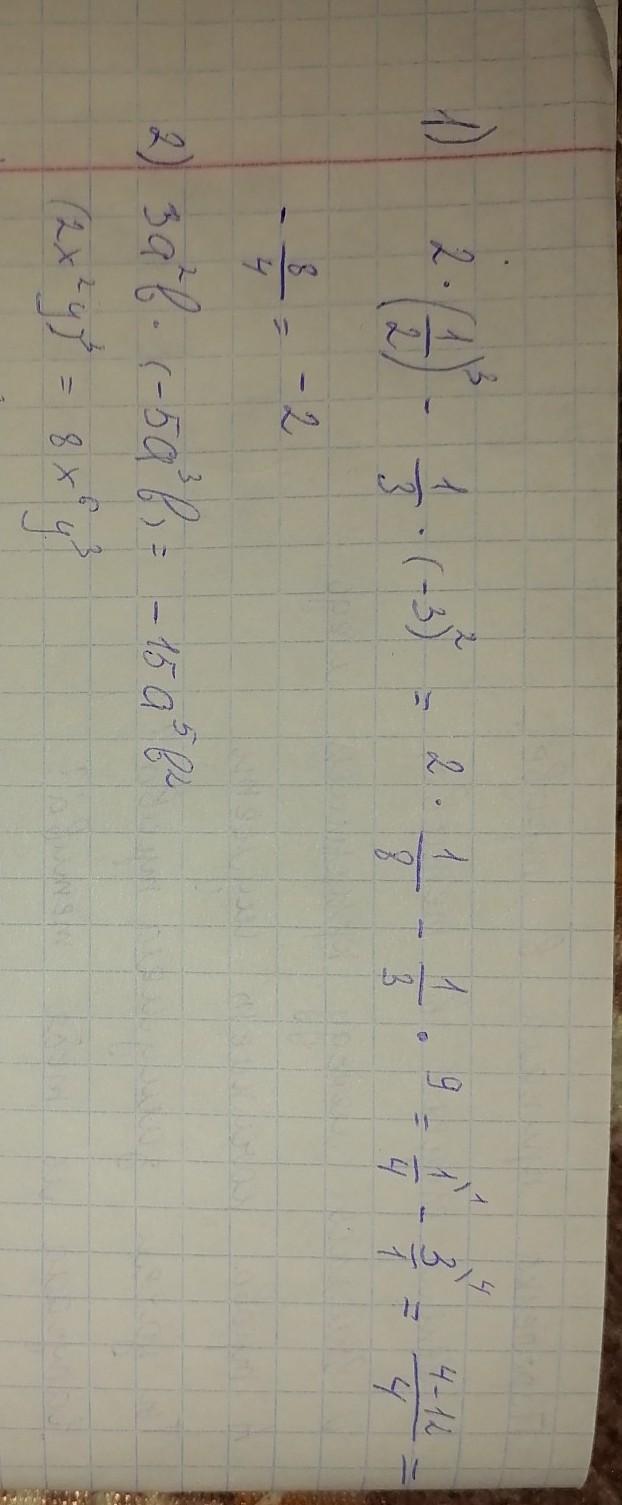 1) 2 · (1/2)³ - 1/3 · (-3)² = 2 · 1/8 - 1/3 · 9 = 1/4\1 - 3/1\4 = 4-12/4 =
- 8/4 = -2
2) 3a²b · (-5a³b) = -15a⁵b²
(2x²y)³ = 8x⁶y³